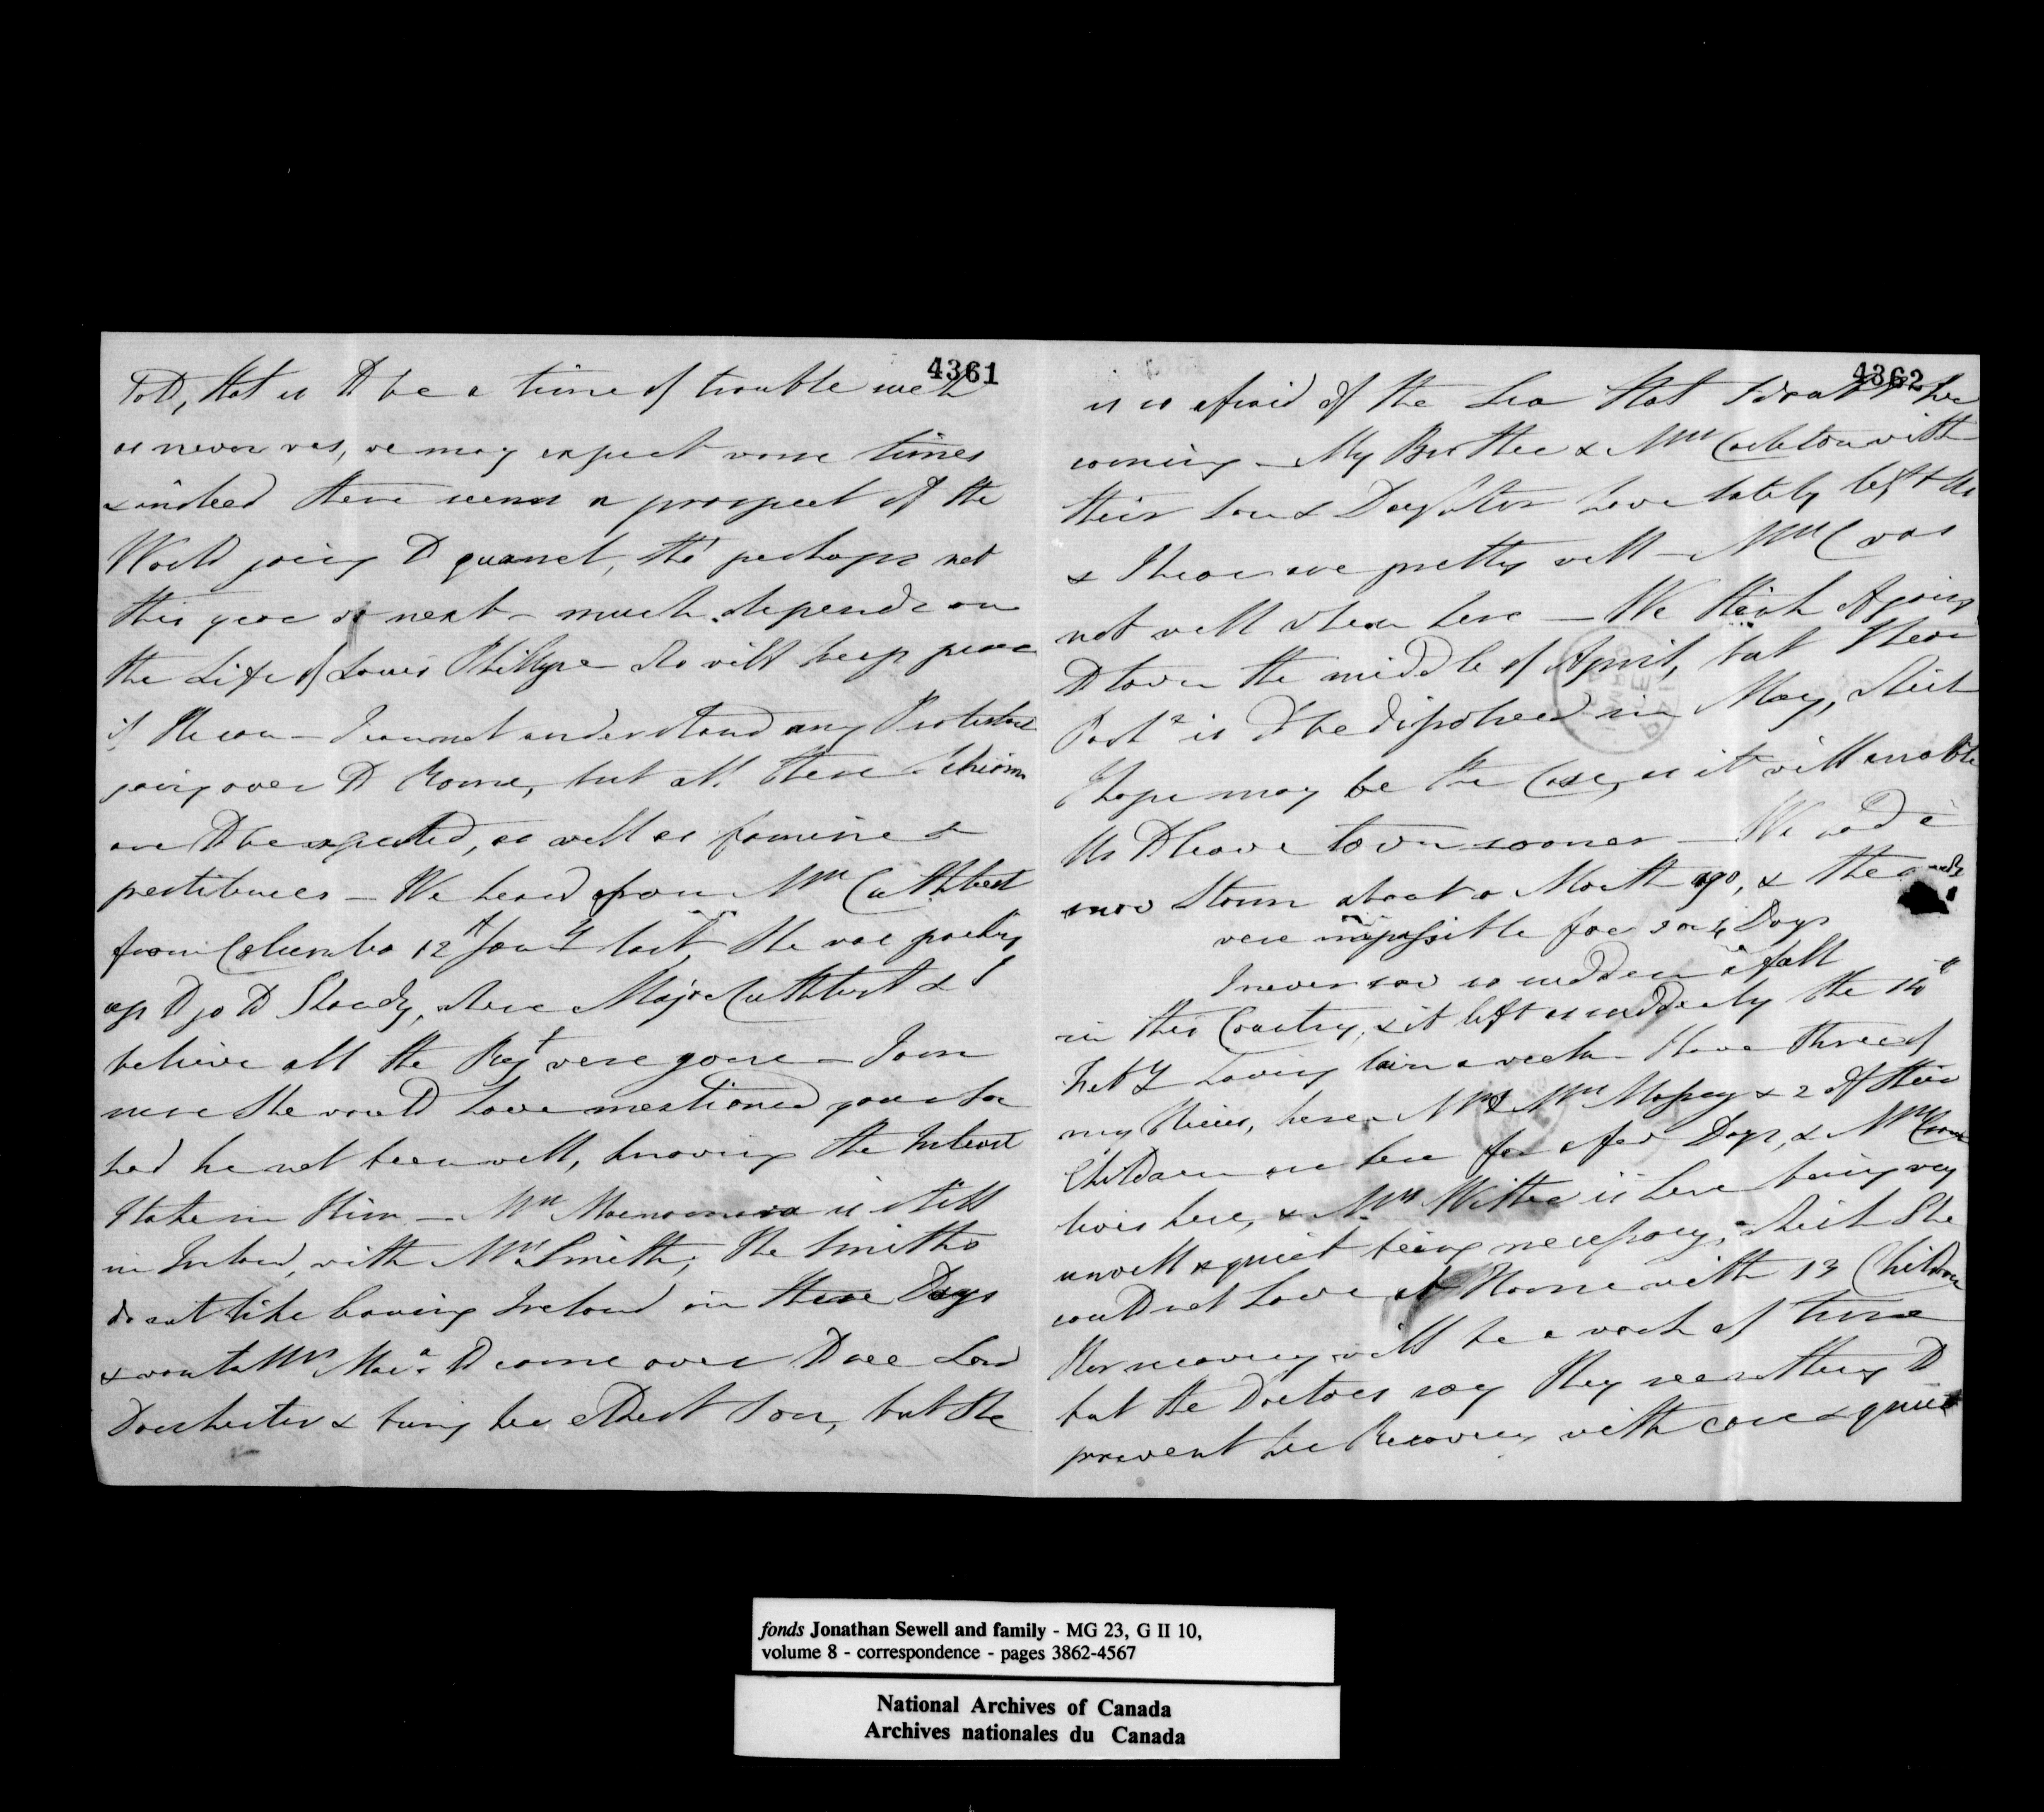 4361
Told, that is to be a time of trouble such
as never was, we may expect some times
& indeed there seems a prospect of the
World going to quarrel, tho' perhaps not
this year or next – much depends on
the Life of Louis Phillipe who will keep peace
if He can – I cannot understand any Protestant
going over to Rome, but all these Schisms
are to be expected, as well as famine &
pestilences – We heard from Mrs Cuthbert
from Columbo 12th Jany last, She was packing
up to go to Kandy, where Major Cuthbert & I
believe all the Regt were gone – I am
sure She would have mentioned your Son
had he not been well, knowing the Interest
I take in Him – Mrs is still
in Ireland, with Mrs Smith, the Smiths
do not like leaving Ireland in these Days
& wants Mrs Mac to come over to see Lord
Dorchester & bring her eldest Son, but She
4362
is so afraid of the Sea that I doubt her
coming – My Brother & Mrs Carleton with
their Son & Daughter have lately left us
& I hear are pretty well – Mrs C was
not well when here – We think of going
to town the middle of April, but I hear
Parlt is to be dissolved in May, which
I hope may be the Case, as it will enable
Us to leave town sooner – We had a
snow Storm about a Month ago, & the roads
were impassible for 3 or 4 Days
I never saw so sudden a fall
in this Country, & it left as suddenly the 16th
Feby having lain a week – I have three of
my Nieces, here – Mr & Mrs Massey & 2 of their
Children are here for a few Days, & Mrs
lives here, & Mrs is here being very
unwell & quiet being necessary, which She
could not have at Home with 13 Children
Her recovery will be a work of time
but the Doctors say they see nothing to
prevent her Recovery with care & quiet
fonds Jonathan Sewell and family - MG 23, G II 10,
volume 8 - correspondence - pages 3862-4567
National Archives of Canada
Archives nationales du Canada